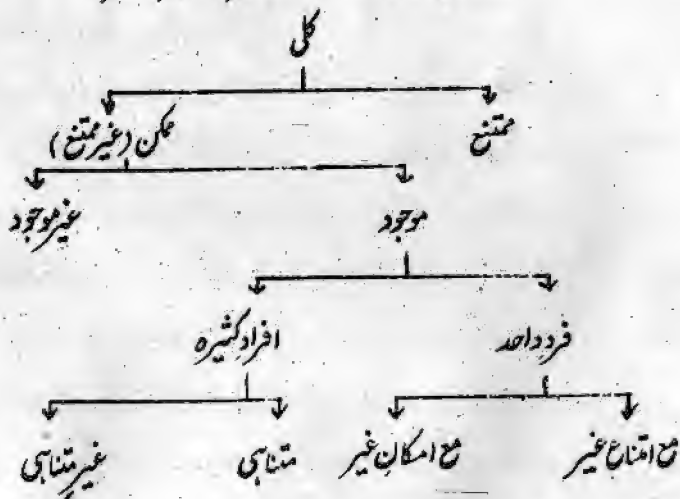 کلی
ممتنع ممکن (غیر ممتنع)
موجود غیر موجود
فردِ واحد افرادِ کثیرہ
مع امتناعِ غیر مع امکانِ غیر متناہی غیر متناہی